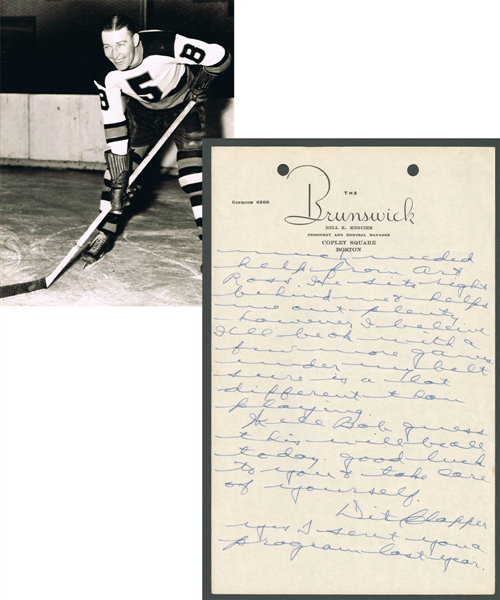 8
5
8
THE
Brunswick
KENMORE 6300
NELL K. MERCIER
PRESIDENT AND GENERAL MANAGER
COPLEY SQUARE
BOSTON
much needed
help from Art
Ross. He sits right
behind me & helps
me out plenty.
However I believe
I'll be ok with a
few more games
under my belt
sure is a lot
different than
playing.
Well Bob guess
this will be all
today. good luck
to you & take care
of yourself.
Dit Clapper
yes I sent you a
program last year.